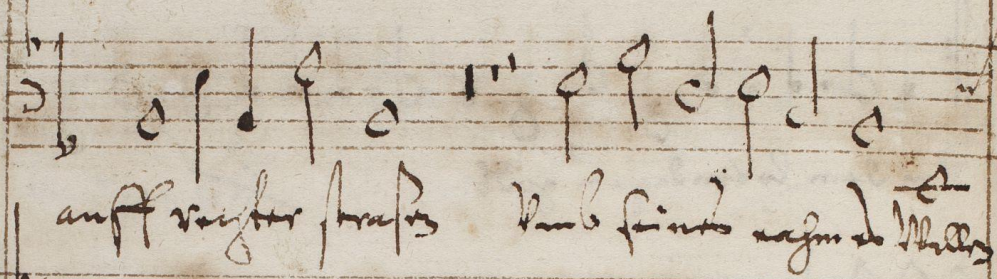 auff rechter strasen Vmb seines nahmes Willen